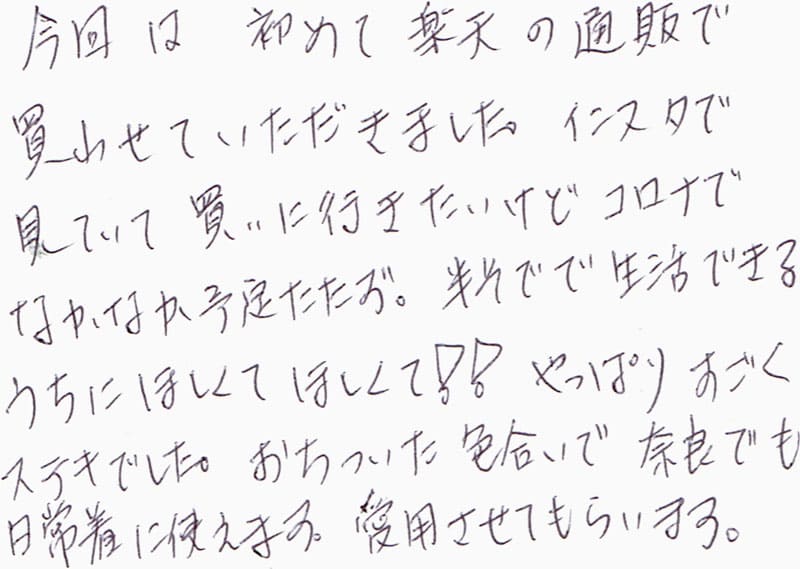 今回は 初めて楽天の通販で
買わせていただきました。インスタで
見ていて 買いに行きたいけど コロナで
なかなか予定たたず。半そでで生活できる
うちにほしくてほしくて!! やっぱり すごく
ステキでした。おちついた色合いで 奈良でも
日常着に使えます。愛用させてもらいます。